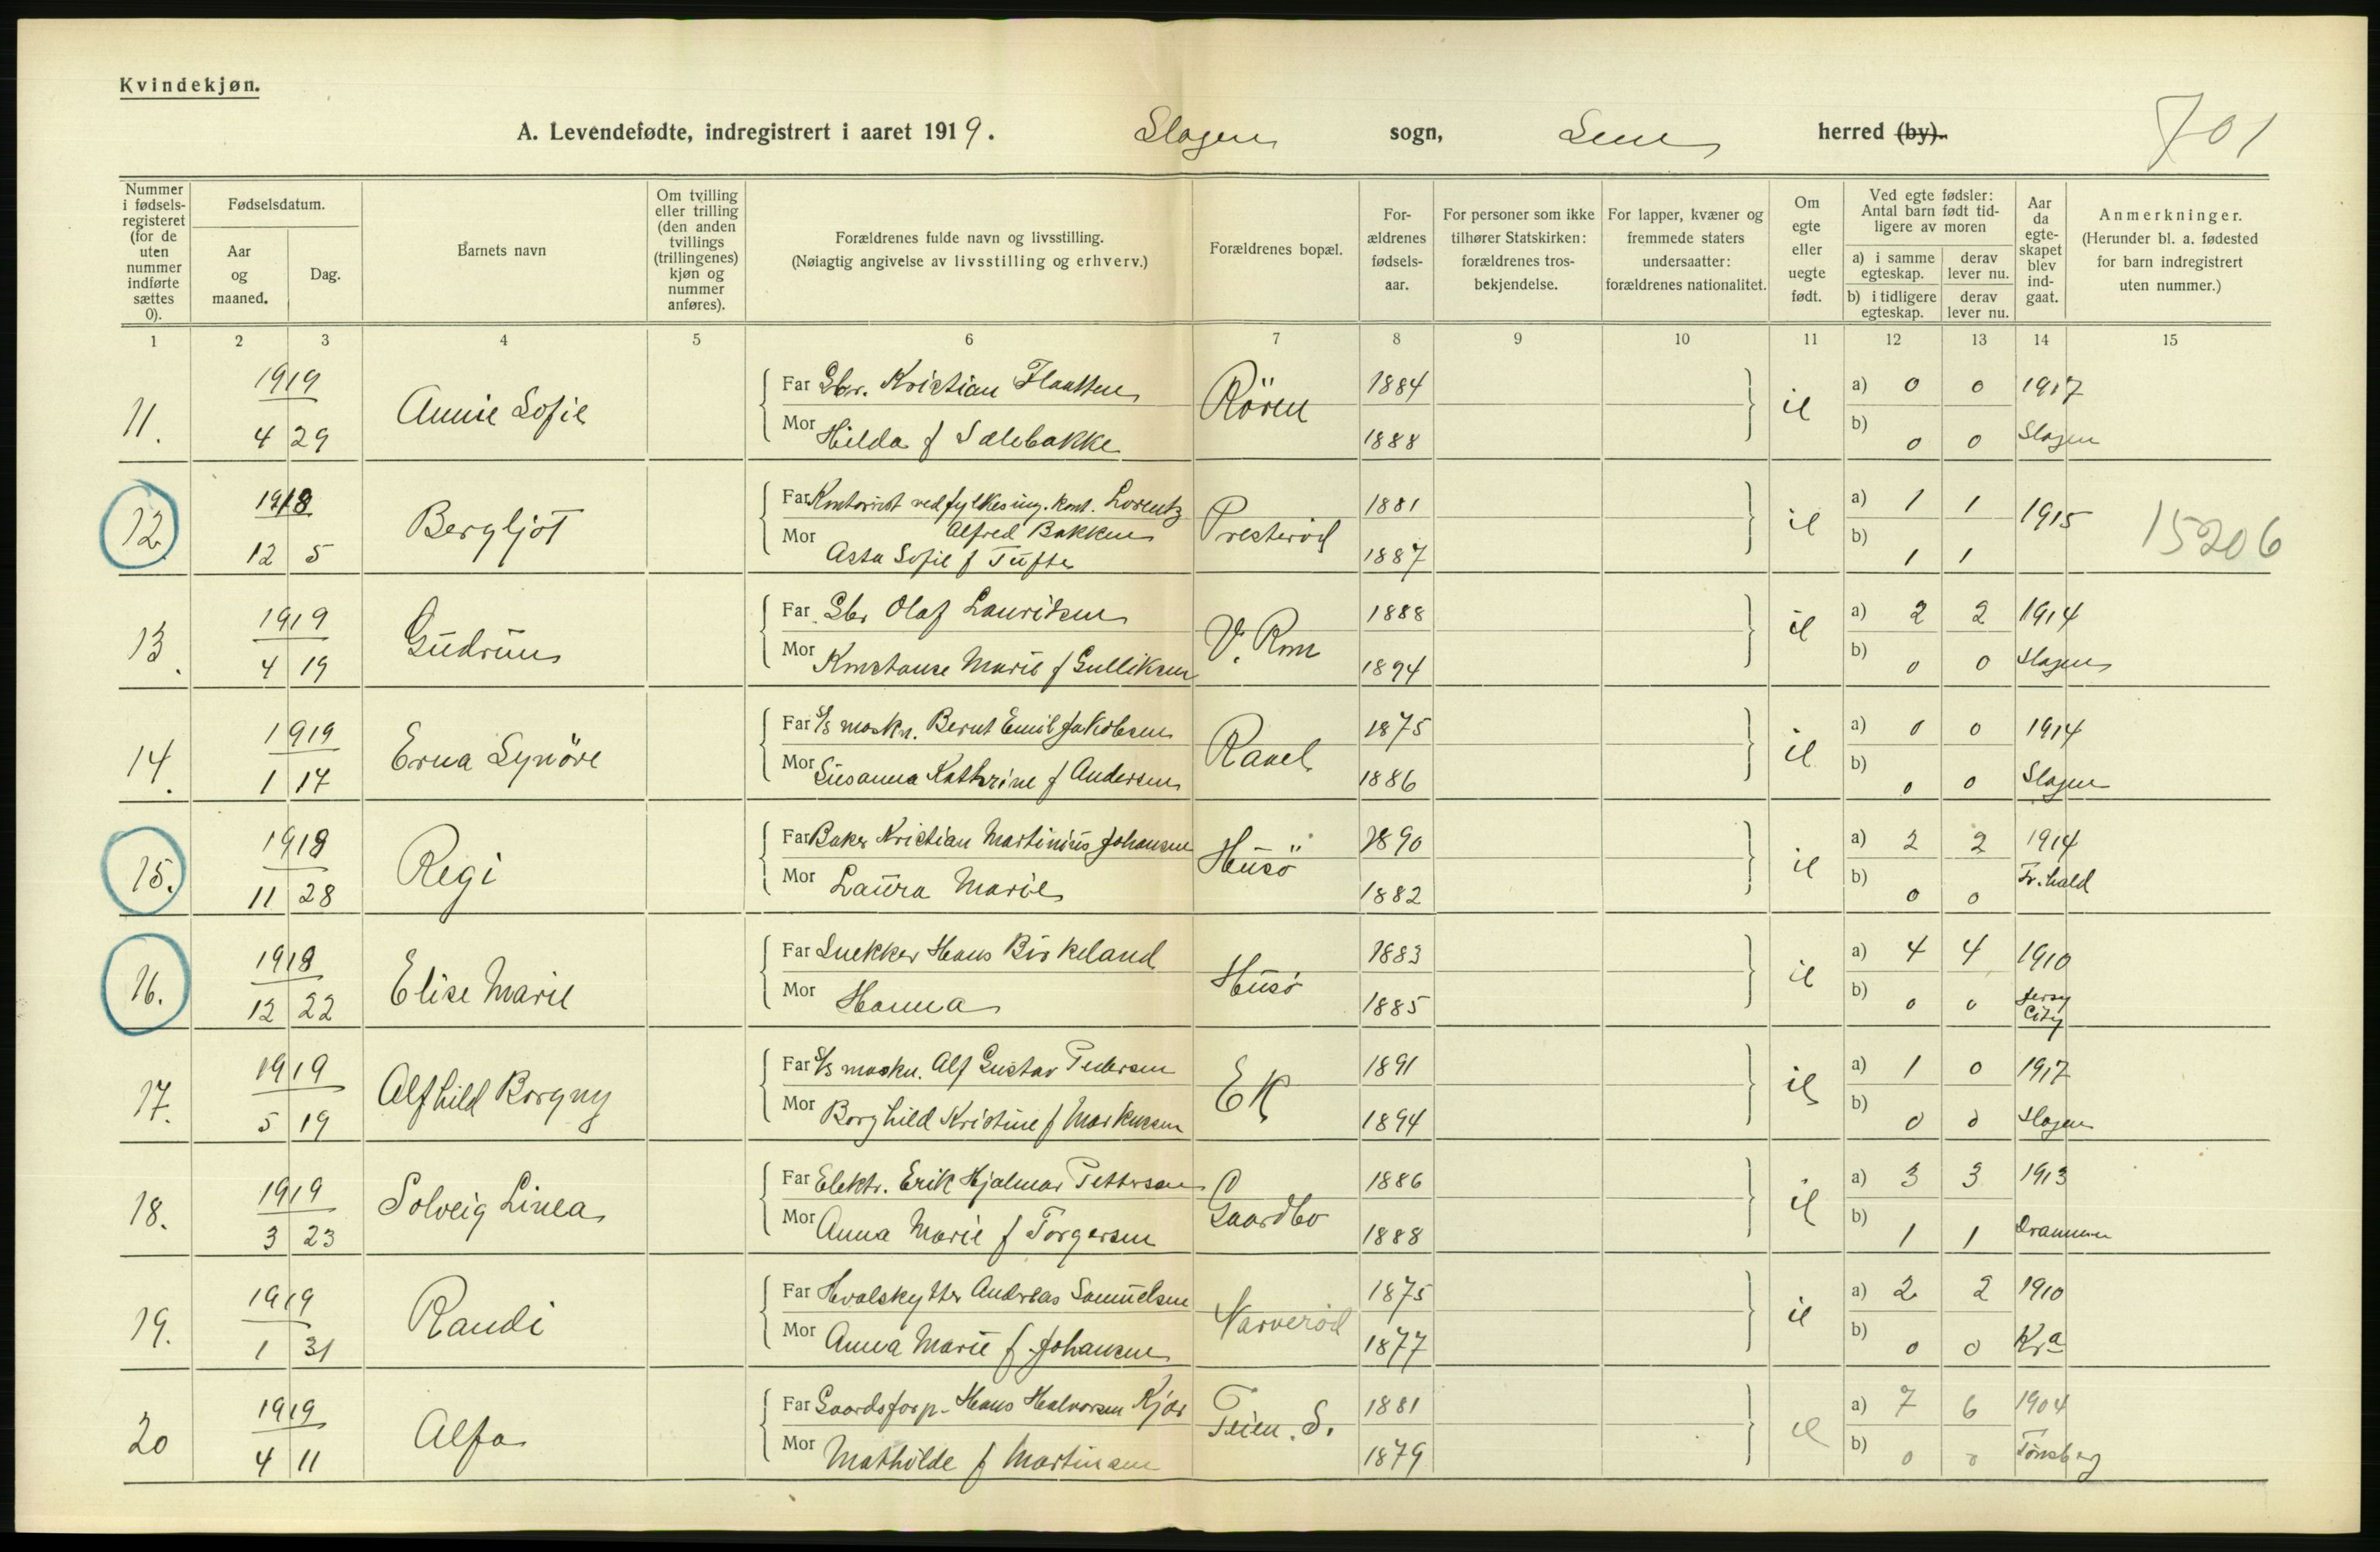 Kvindekjøn.
A. Levendefødte, indregistrert i aaret 1919. Slagen sogn, Sem herred (by).
701
Nummer i fødselsregisteret (for de uten nummer indførte sættes 0).
Fødselsdatum.
Aar og maaned.
Dag.
Barnets navn
Om tvilling eller trilling (den anden tvillings (trillingenes) kjøn og nummer anføres).
Forældrenes fulde navn og livsstilling.
(Nøiagtig angivelse av livsstilling og erhverv.)
Forældrenes bopæl.
Forældrenes fødselsaar.
For personer som ikke tilhører Statskirken: forældrenes trosbekjendelse.
For lapper, kvæner og fremmede staters undersaatter: forældrenes nationalitet.
Om egte eller uegte født.
Ved egte fødsler: Antal barn født tidligere av moren
a) i samme egteskap.
derav lever nu.
b) i tidligere egteskap.
derav lever nu.
Aar da egteskapet blev indgaat.
Anmerkninger.
(Herunder bl. a. fødested for barn indregistrert uten nummer.)
1 2 3 4 5 6 7 8 9 10 11 12 13 14 15
1919 Far Gbr. Kristian Flaatten 1884 a) 0 0 1917
11. Annie Sofie Rören il
4 29 Mor Hilda f Sælebakke 1888 b) 0 0 Slagen
1918 Far Kontorist ved fylkesing. kont. Lorentz 1881 a) 1 1 1915
12 Bergljot Alfred Bakken Presteröd il 15206
12 5 Mor Asta Sofie f Tufte 1887 b) 1 1
1919 Far Gbr Olaf Lauritsen 1888 a) 2 2 1914
13. Gudrun V. Rom il
4 19 Mor Konstanse Marie f Gulliksen 1894 b) 0 0 Slagen
1919 Far S/S maskn. Bernt Emil Jakobsen 1875 a) 0 0 1914
14. Erna Synöve Ravel il
1 17 Mor Susanna Kathrine f Andersen 1886 b) 0 0 Slagen
1918 Far Baker Kristian Martinius Johansen 1890 a) 2 2 1914
15. Regi Husö il
11 28 Mor Laura Marie 1882 b) 0 0 Fr.hald
1918 Far Snekker Hans Birkeland 1883 a) 4 4 1910
16. Elise Marie Husö il
12 22 Mor Hanna 1885 b) 0 0 Jersy City
1919 Far S/S maskn. Alf Gustav Pedersen 1891 a) 1 0 1917
17. Alfhild Borgny Ek il
5 19 Mor Borghild Kristine f Markussen 1894 b) 0 0 Slagen
1919 Far Elektr. Erik Hjalmar Pettersen 1886 a) 3 3 1913
18. Solveig Linea Gaardbo il
3 23 Mor Anna Marie f Torgersen 1888 b) 1 1 Drammen
1919 Far Hvalskytter Andreas Samuelsen 1875 a) 2 2 1910
19. Randi Narveröd il
1 31 Mor Anna Marie f. Johansen 1877 b) 0 0 Kra
1919 Far Gaardsforp. Hans Halvorsen Kjær 1881 a) 7 6 1904
20 Alfa Teien. S. il
4 11 Mor Mathilde f Martinsen 1879 b) 0 0 Tönsberg